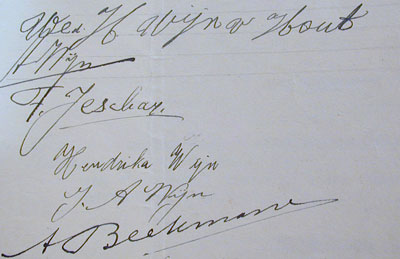 Wed H Wijn v Hout
A Wijn
F. Jeschar.
Hendrika Wijn
J A Wijn
A Beekmann